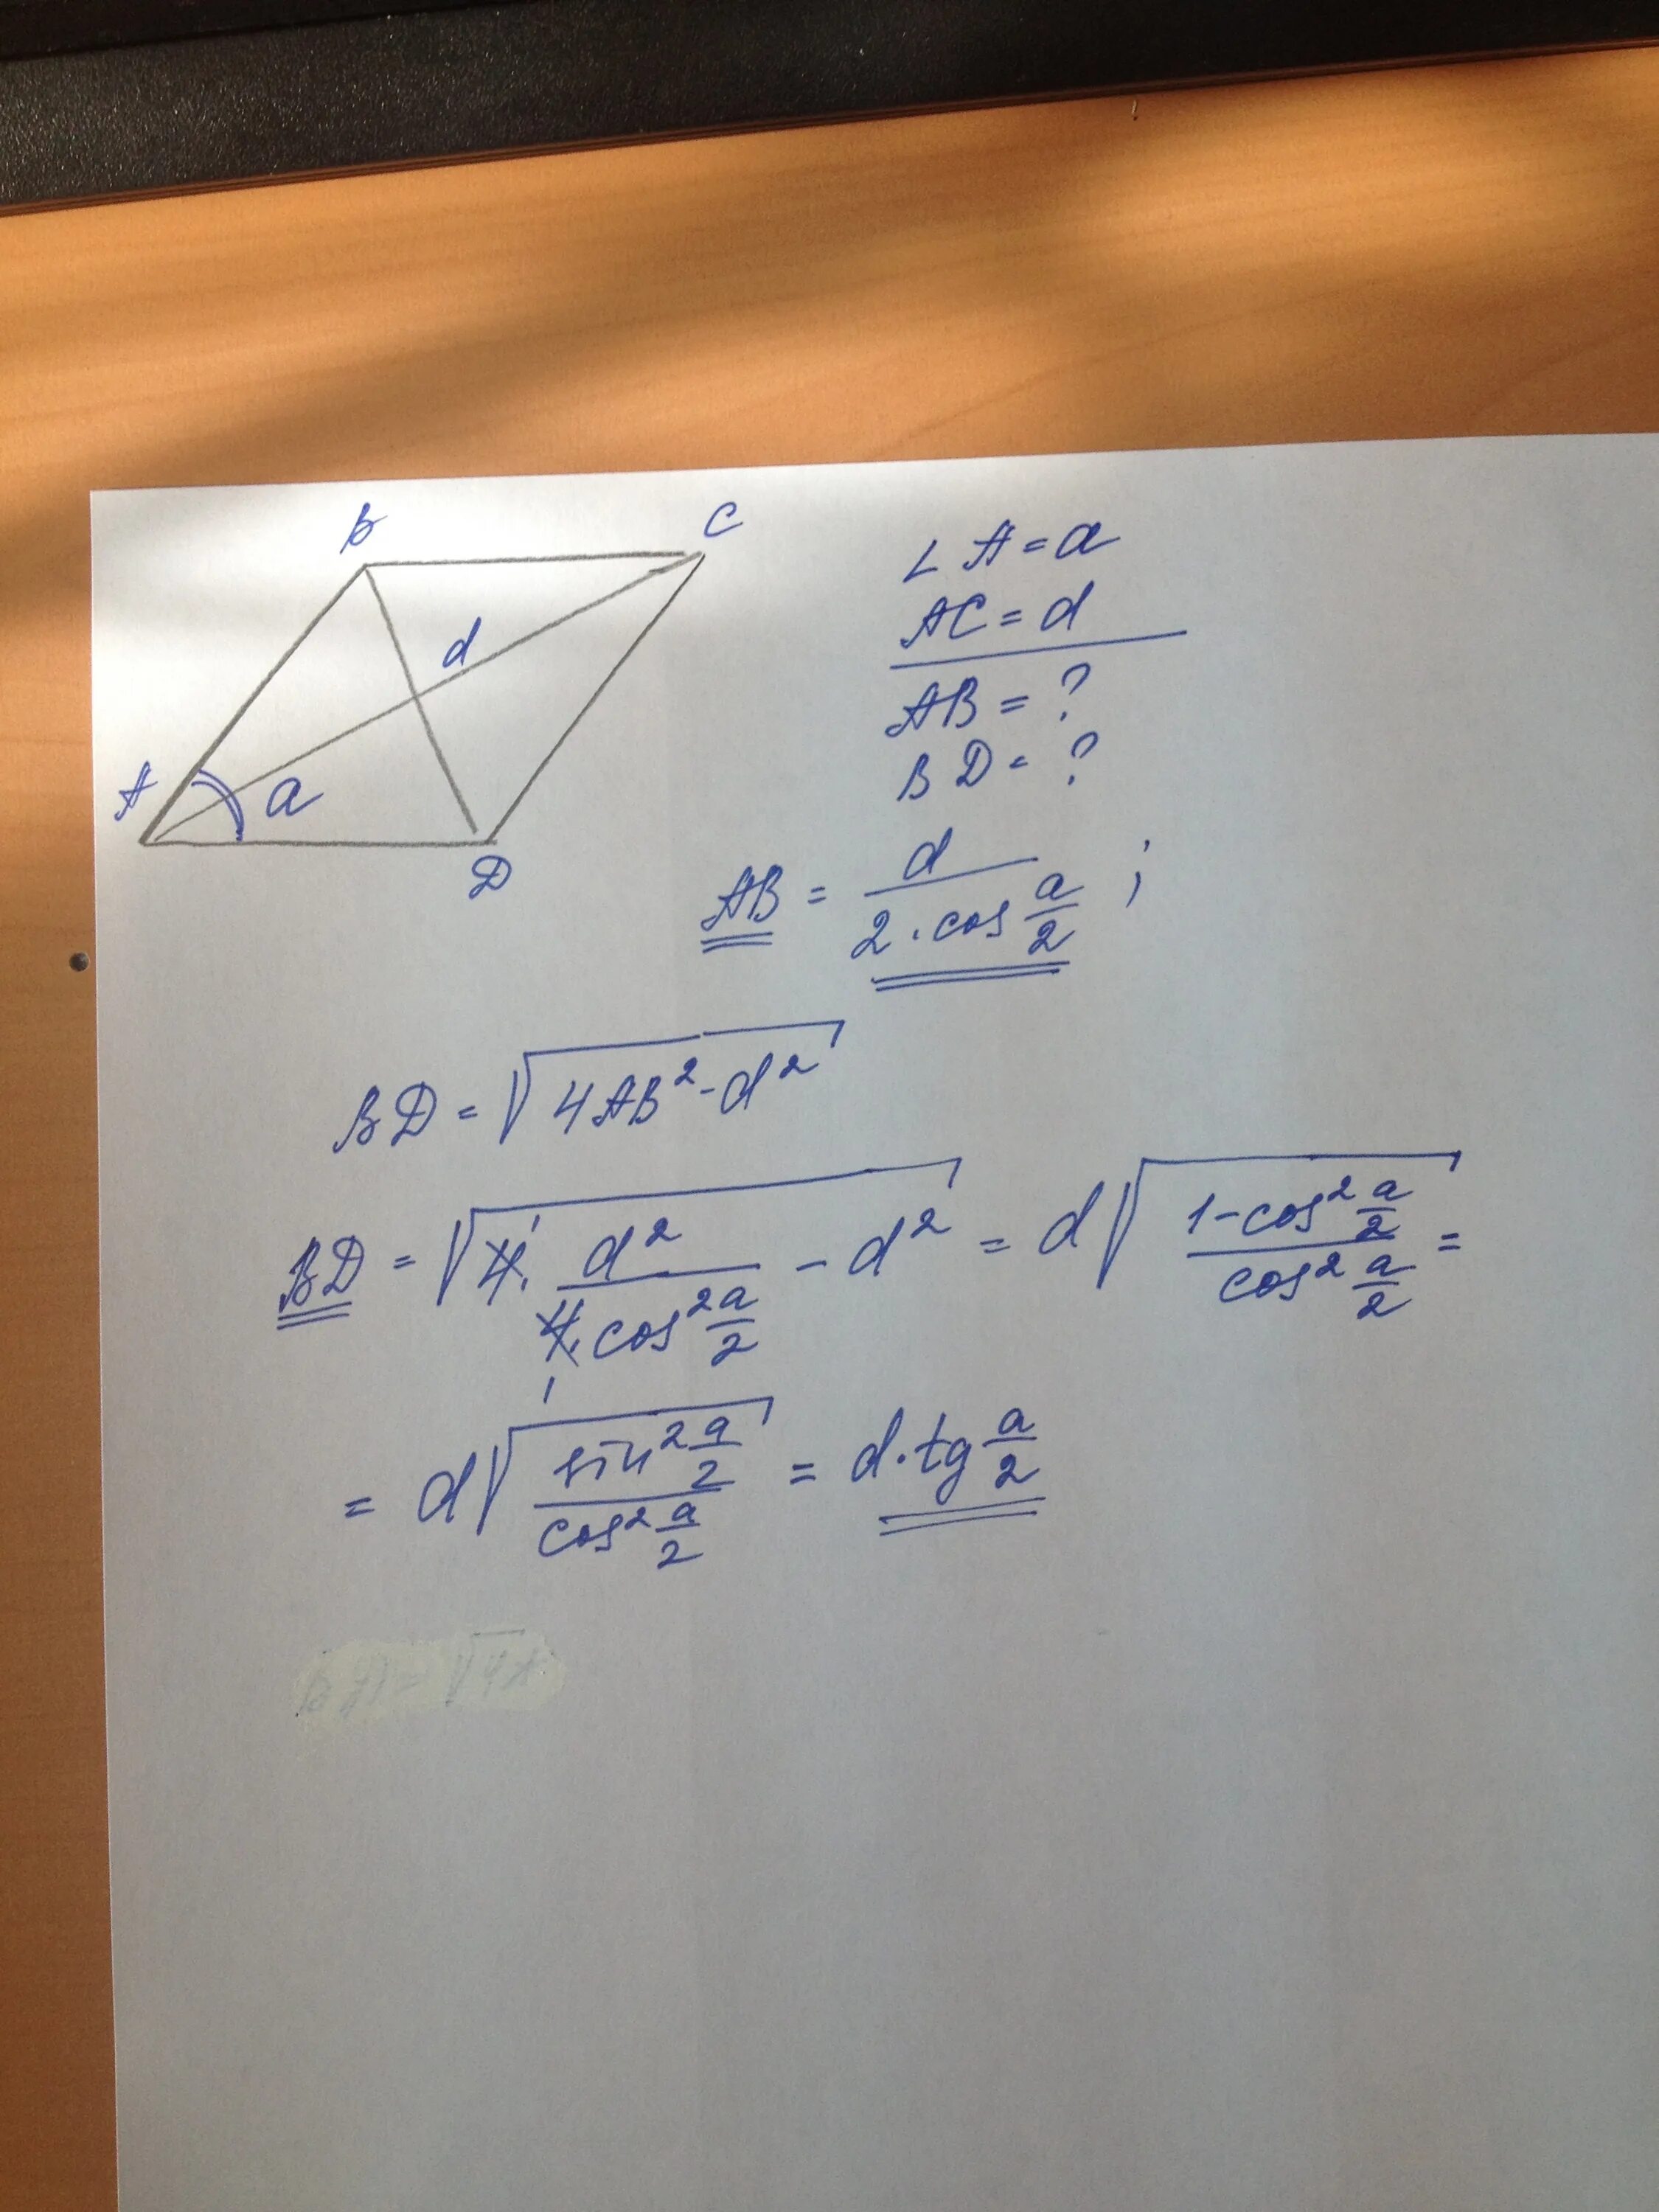 B C
d
A a
D
∠A = a
AC = d
AB = ?
BD = ?
AB = d / (2 · cos a/2) ;
BD = √(4AB² - d²)
BD = √(4 · d² / (4 · cos² a/2) - d²) = d√((1 - cos² a/2) / (cos² a/2)) =
= d√((sin² a/2) / (cos² a/2)) = d · tg a/2